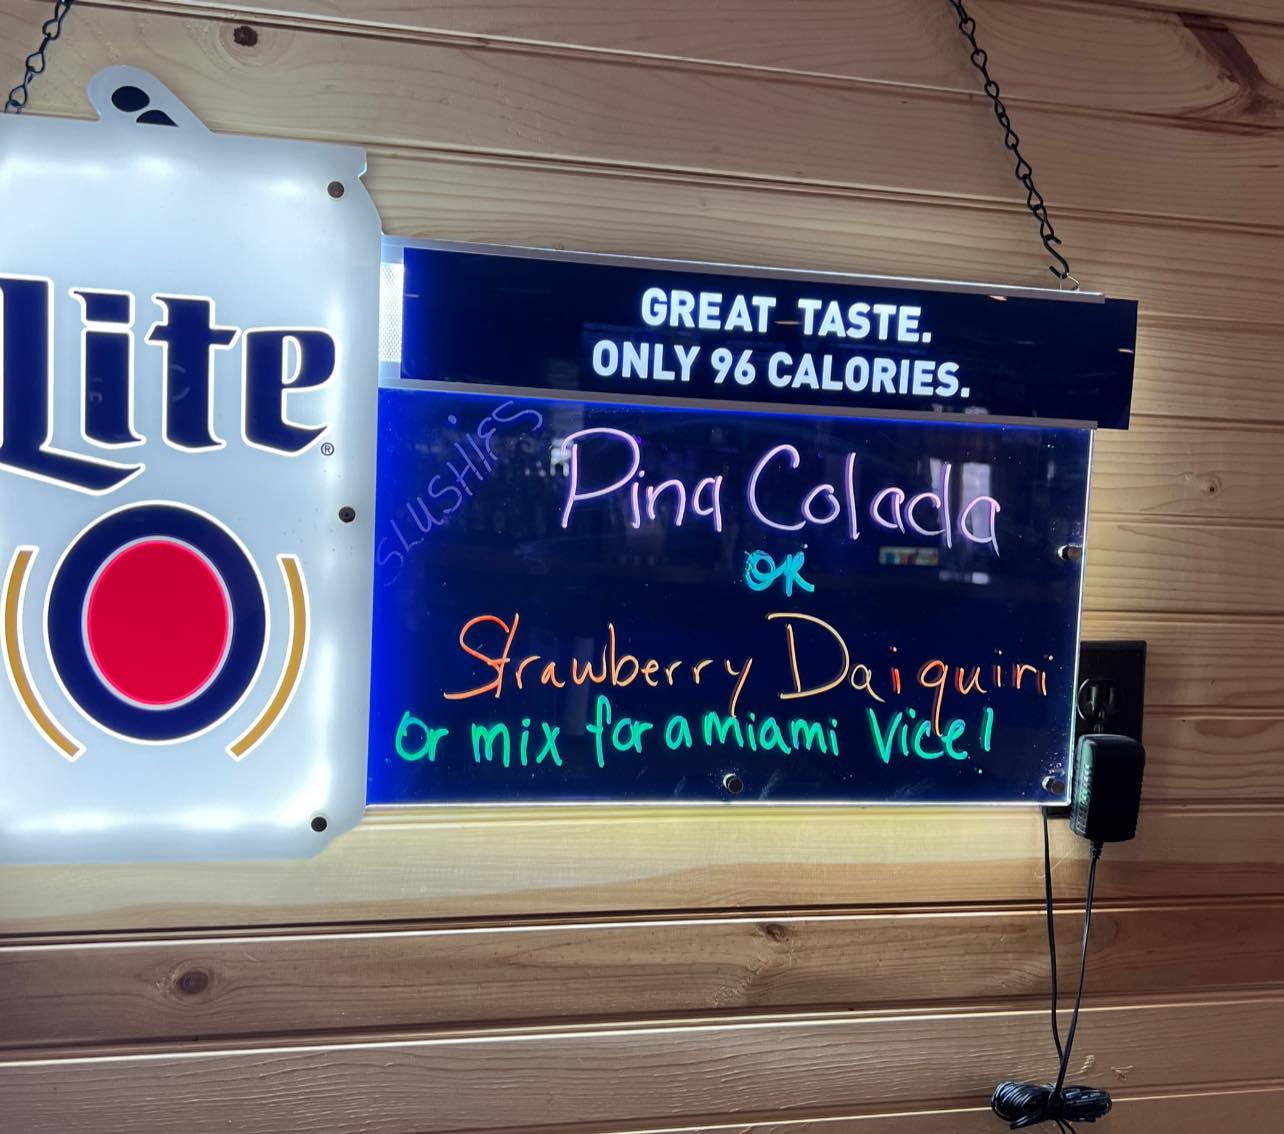 Lite®
GREAT TASTE.
ONLY 96 CALORIES.
SLUSHIES
Pina Colada
OR
Strawberry Daiquiri
Or mix for a miami Vice!